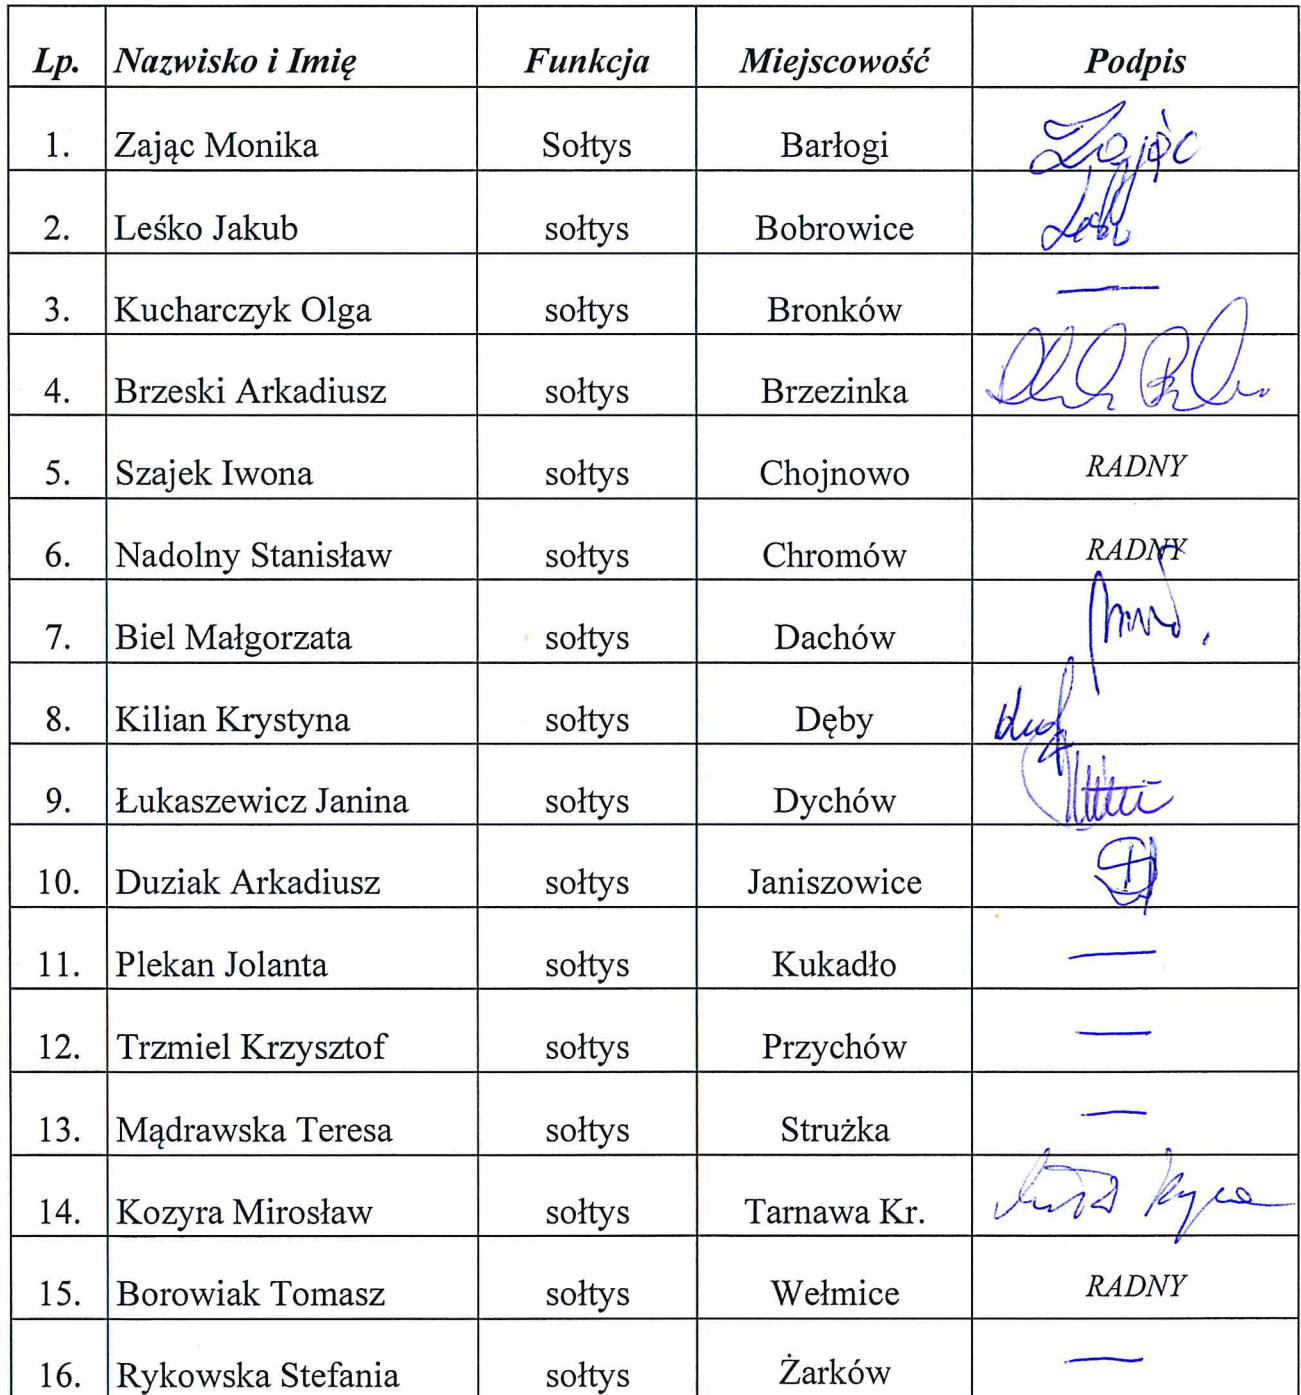 Lp. Nazwisko i Imię Funkcja Miejscowość Podpis
1. Zając Monika Sołtys Barłogi Zając
2. Leśko Jakub sołtys Bobrowice
3. Kucharczyk Olga sołtys Bronków —
4. Brzeski Arkadiusz sołtys Brzezinka
5. Szajek Iwona sołtys Chojnowo RADNY
6. Nadolny Stanisław sołtys Chromów RADNY
7. Biel Małgorzata sołtys Dachów
8. Kilian Krystyna sołtys Dęby
9. Łukaszewicz Janina sołtys Dychów
10. Duziak Arkadiusz sołtys Janiszowice
11. Plekan Jolanta sołtys Kukadło —
12. Trzmiel Krzysztof sołtys Przychów —
13. Mądrawska Teresa sołtys Strużka —
14. Kozyra Mirosław sołtys Tarnawa Kr.
15. Borowiak Tomasz sołtys Wełmice RADNY
16. Rykowska Stefania sołtys Żarków —